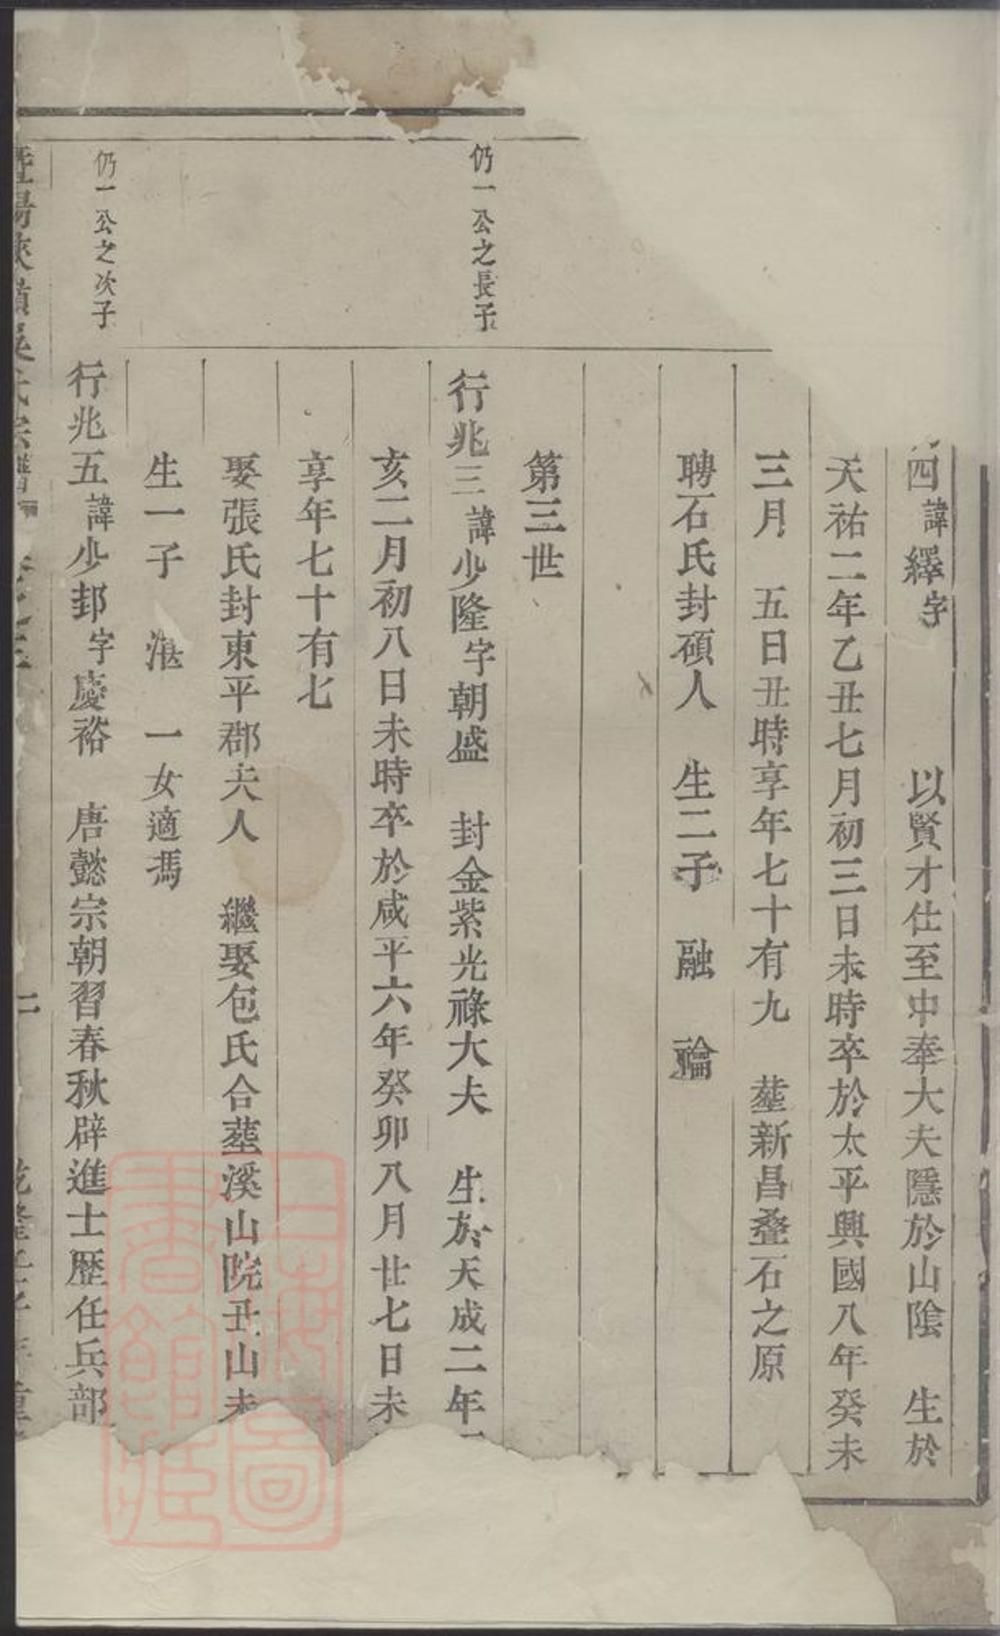 四諱繹字 以賢才仕至中奉大夫隱於山陰 生於
天祐二年乙丑七月初三日未時卒於太平興國八年癸未
三月 五日丑時享年七十有九 塟新昌叠石之原
聘石氏封碩人 生二子 融 論
第三世
仍一公之長子
行兆三諱少隆字朝盛 封金紫光祿大夫 生於天成二年
亥二月初八日未時卒於咸平六年癸卯八月廿七日未
享年七十有七
娶張氏封東平郡夫人 繼娶包氏合塟溪山院丑山未
生一子 湛 一女適馮
仍一公之次子
行兆五諱少邽字慶裕 唐懿宗朝習春秋辟進士歷任兵部
暨陽 嶺吳氏宗譜
上海圖書館藏